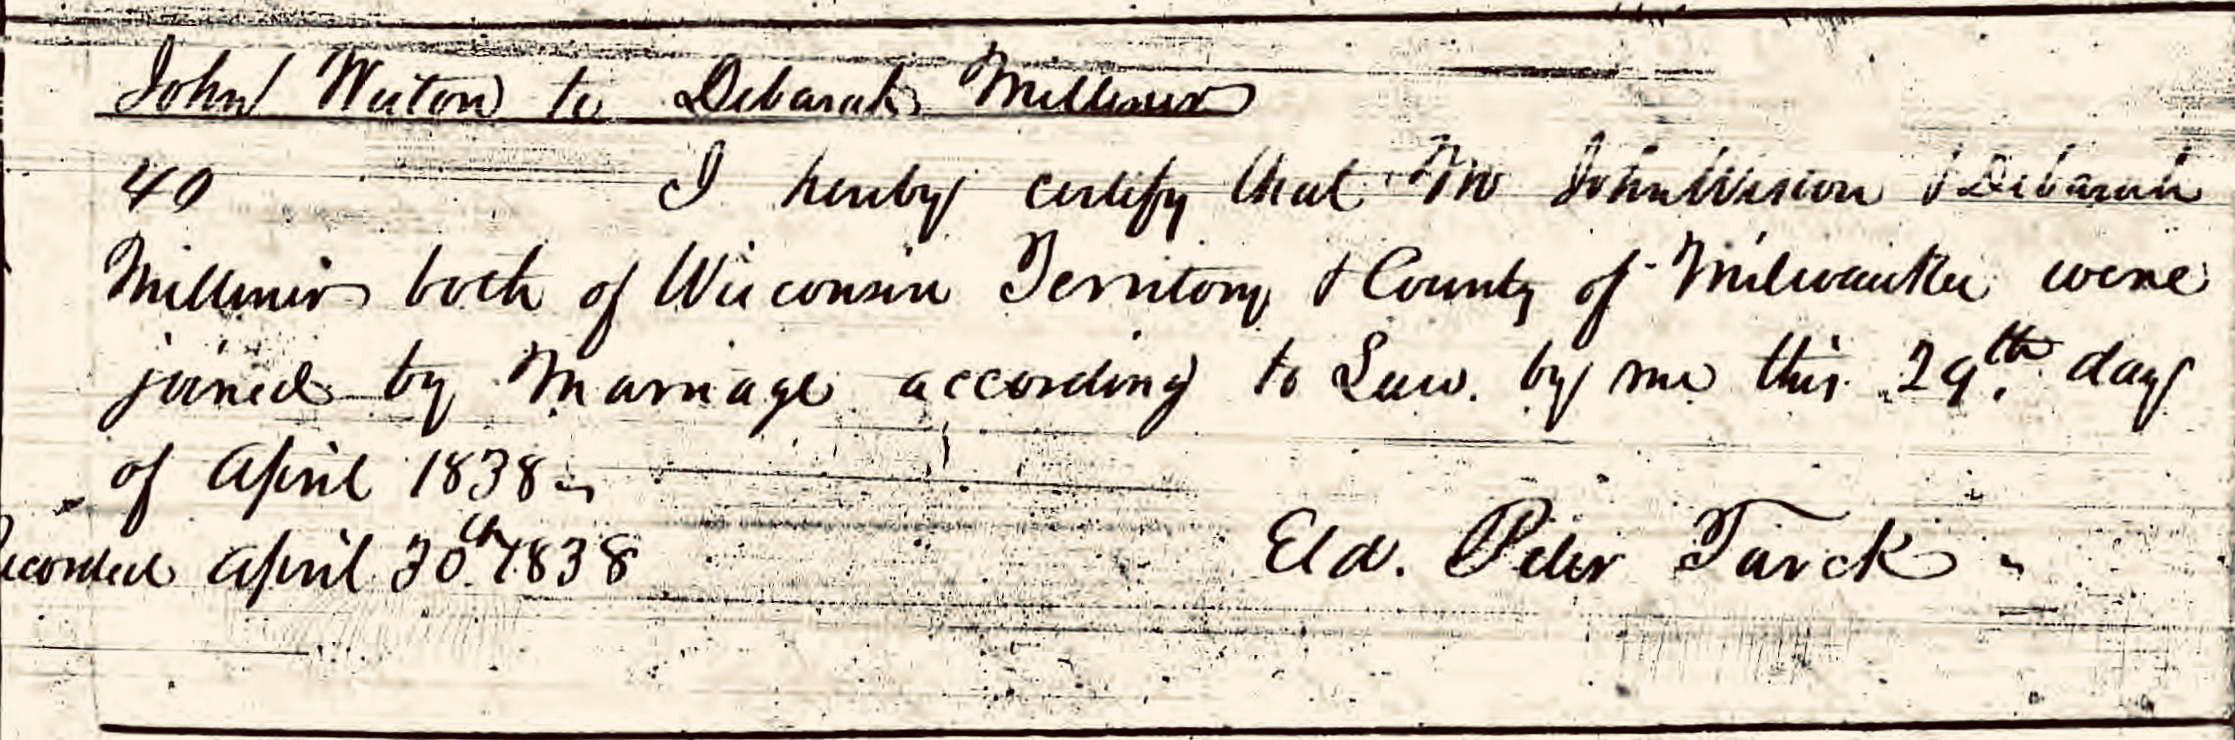 John Weston to Debarah Millmer
40 I hereby certify that Mr John Weston & Debarah
Millmer both of Wisconsin Territory & County of Milwaukee were
joined by Marriage according to Law. by me this 29th. day
of April 1838
Recorded April 30th 1838 Eld. Peter Tarck